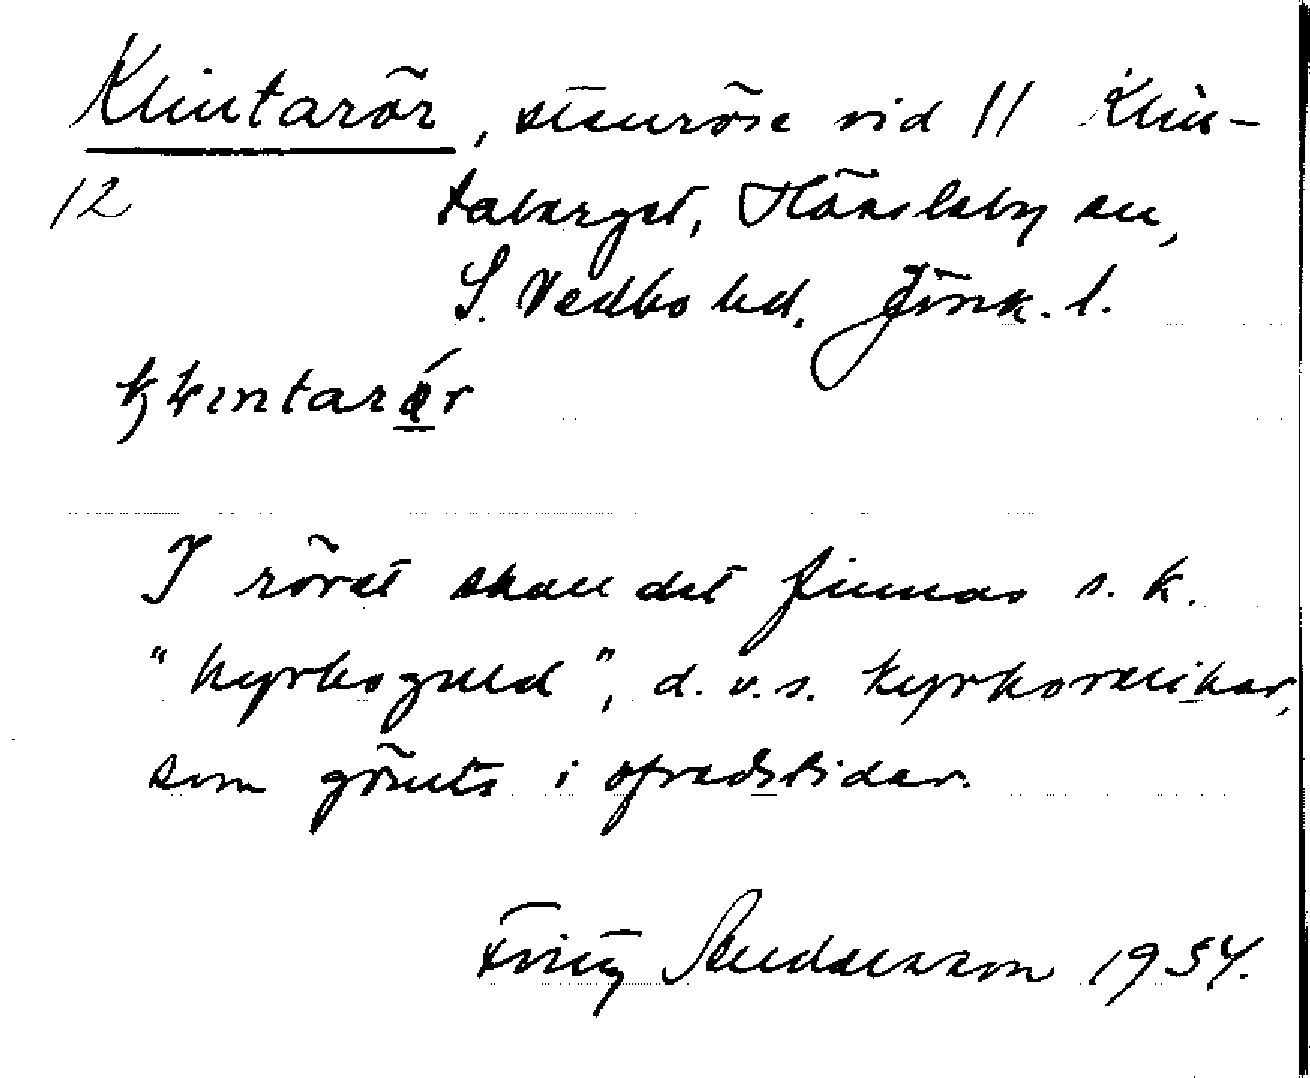 Klintarör, stenröse vid 11 Klin-
12 taberget, Hässleby sn,
S. Vedbo hd. Jönk. l.
I röret skall det finnas s. k.
"kyrkoguld", d.v.s. kyrkoreliker,
som gömts i ofredstider.
Fritz Anderson 1934.